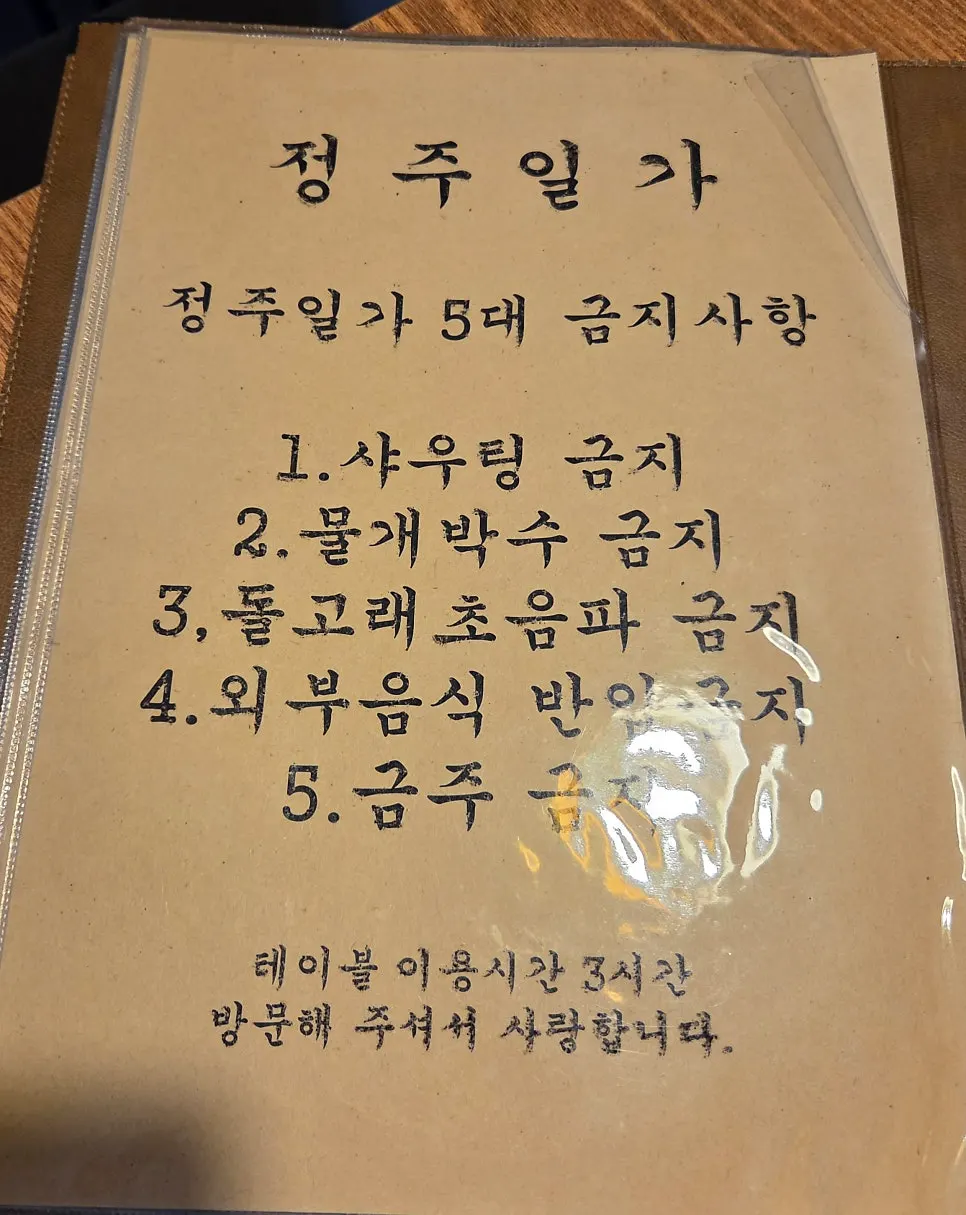 정주일가
정주일가 5대 금지사항
1.샤우팅 금지
2.물개박수 금지
3,돌고래초음파 금지
4.외부음식 반입금지
5.금주 금지
테이블 이용시간 3시간
방문해 주셔서 사랑합니다.